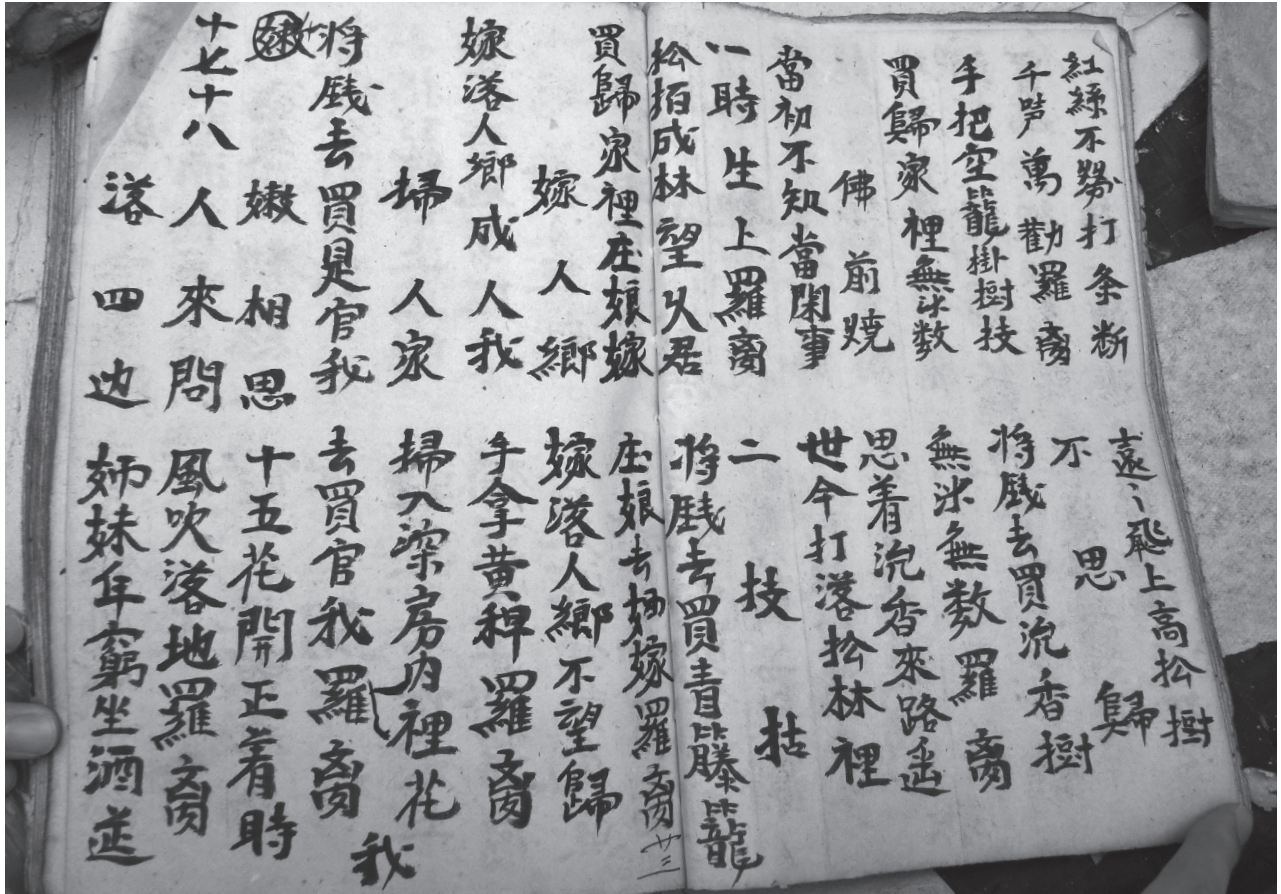 紅綠不勞打条断 遠〻飛上高松樹
千萬勸羅裔 不思歸
手把空籠掛樹技 将銭去買沉香樹
買歸家裡無氷数 無氷無数羅裔
佛前燒 思着沉香來路遥
當初不知當閑事 世今打落松林裡
一時生上羅裔 二技拈
松栢成林望乆居 将銭去買青籐籠
買歸家裡庄娘嫁 庄娘去嫁羅裔 廿三
嫁人鄉 嫁落人鄉不望歸
嫁落人鄉成人我 手拿黄稗羅裔
掃人家 掃入深房内裡花
将銭去買是官我 去買官我羅裔 我
嫩嫩相思 十五花開正着時
十七十八人來問 風吹落地羅裔
落四边 姊妹年窮坐酒筵